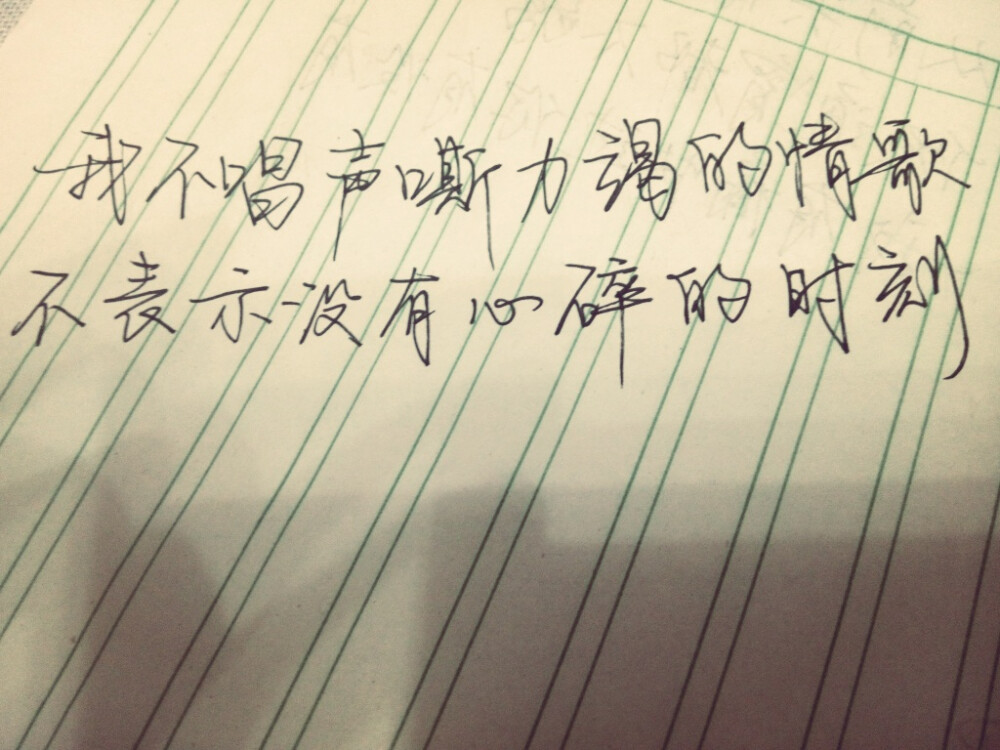 我不唱声嘶力竭的情歌
不表示没有心碎的时刻